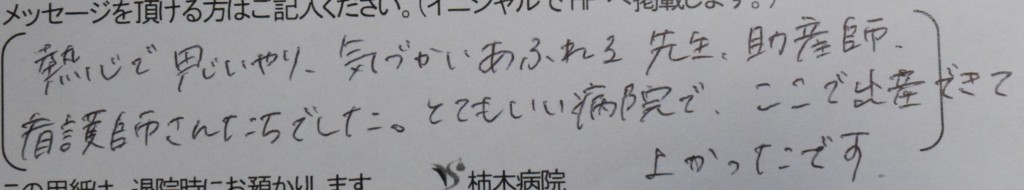 メッセージを頂ける方はご記入ください。(イニシャルでHPへ掲載します。)
熱心で思いやり、気づかいあふれる先生、助産師、
看護師さんたちでした。とてもいい病院で、ここで出産できて
よかったです
この用紙は、退院時にお預かりします 柿木病院